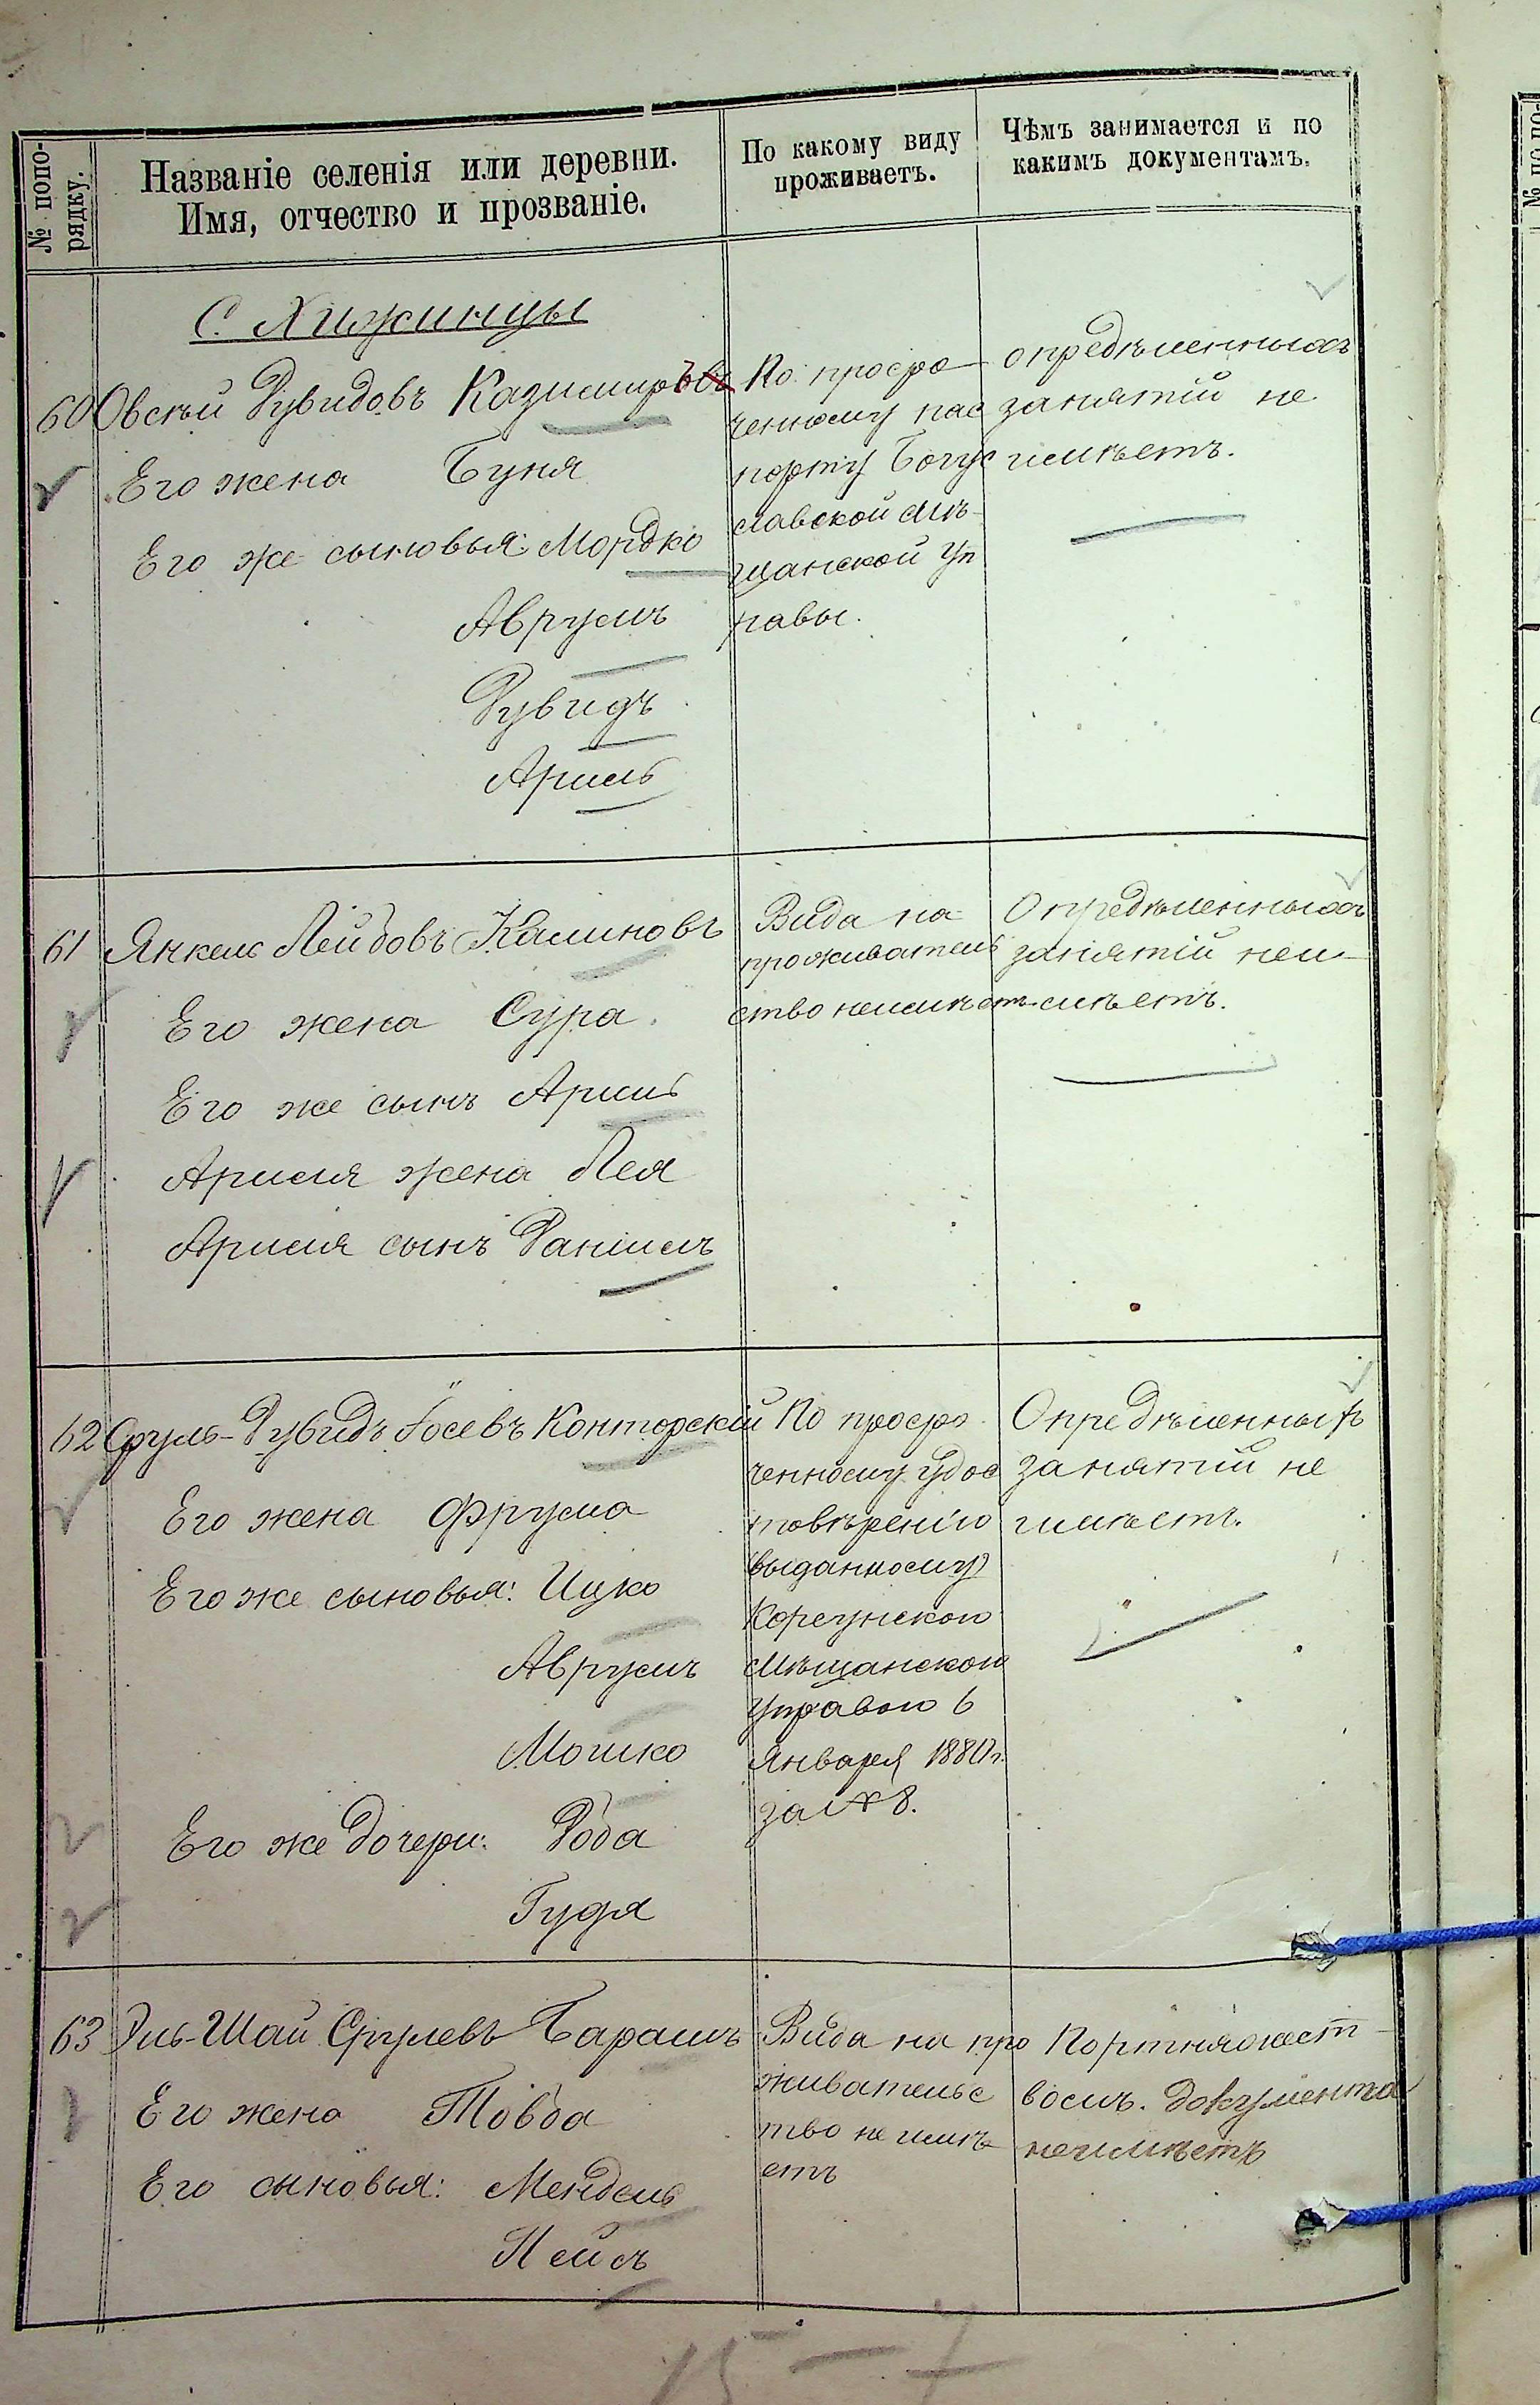 № попо-
рядку.
Названіе селенія или деревни.
Имя, отчество и прозваніе.
По какому виду
проживаетъ.
Чѣмъ занимается и по
какимъ документамъ.
С. Хижинцы
60 Овсѣй Дувидовъ Казимировъ
Его жена Буня
Его же сыновья: Мордко
Аврумъ
Дувидъ
Аріель
По просро-
ченному пас
порту Богус
славской мѣ-
щанской уп
равы.
опредѣленныхъ
занятій не
имѣетъ.
61 Янкель Лейбовъ Калиновъ
Его жена Сура.
Его же сынъ Аріель
Аріеля жена Лея
Аріеля сынъ Даніилъ
Вида на
проживатель
ство неимѣетъ.
Опредѣленныхъ
занятій неи-
мѣетъ.
62 Сруль-Дувидъ Іосевъ Конторскій
Его жена Фрума
Его же сыновья: Ицко
Аврумъ
Мошко
Его же дочери: Роба
Гудя
По просро
ченному удос
товѣренію
выданному
Корсунскою
Мѣщанскою
Управою 6
Января 1880 г.
за № 8.
Опредѣленныхъ
занятій не
имѣетъ.
63 Эль-Шая Срулевъ Барашъ
Его жена Товба
Его сыновья: Мендель
Пейсъ
Вида на про
живательс
тво не имѣ-
етъ
Портняжест-
вомъ. документа
неимѣетъ
15 — 7